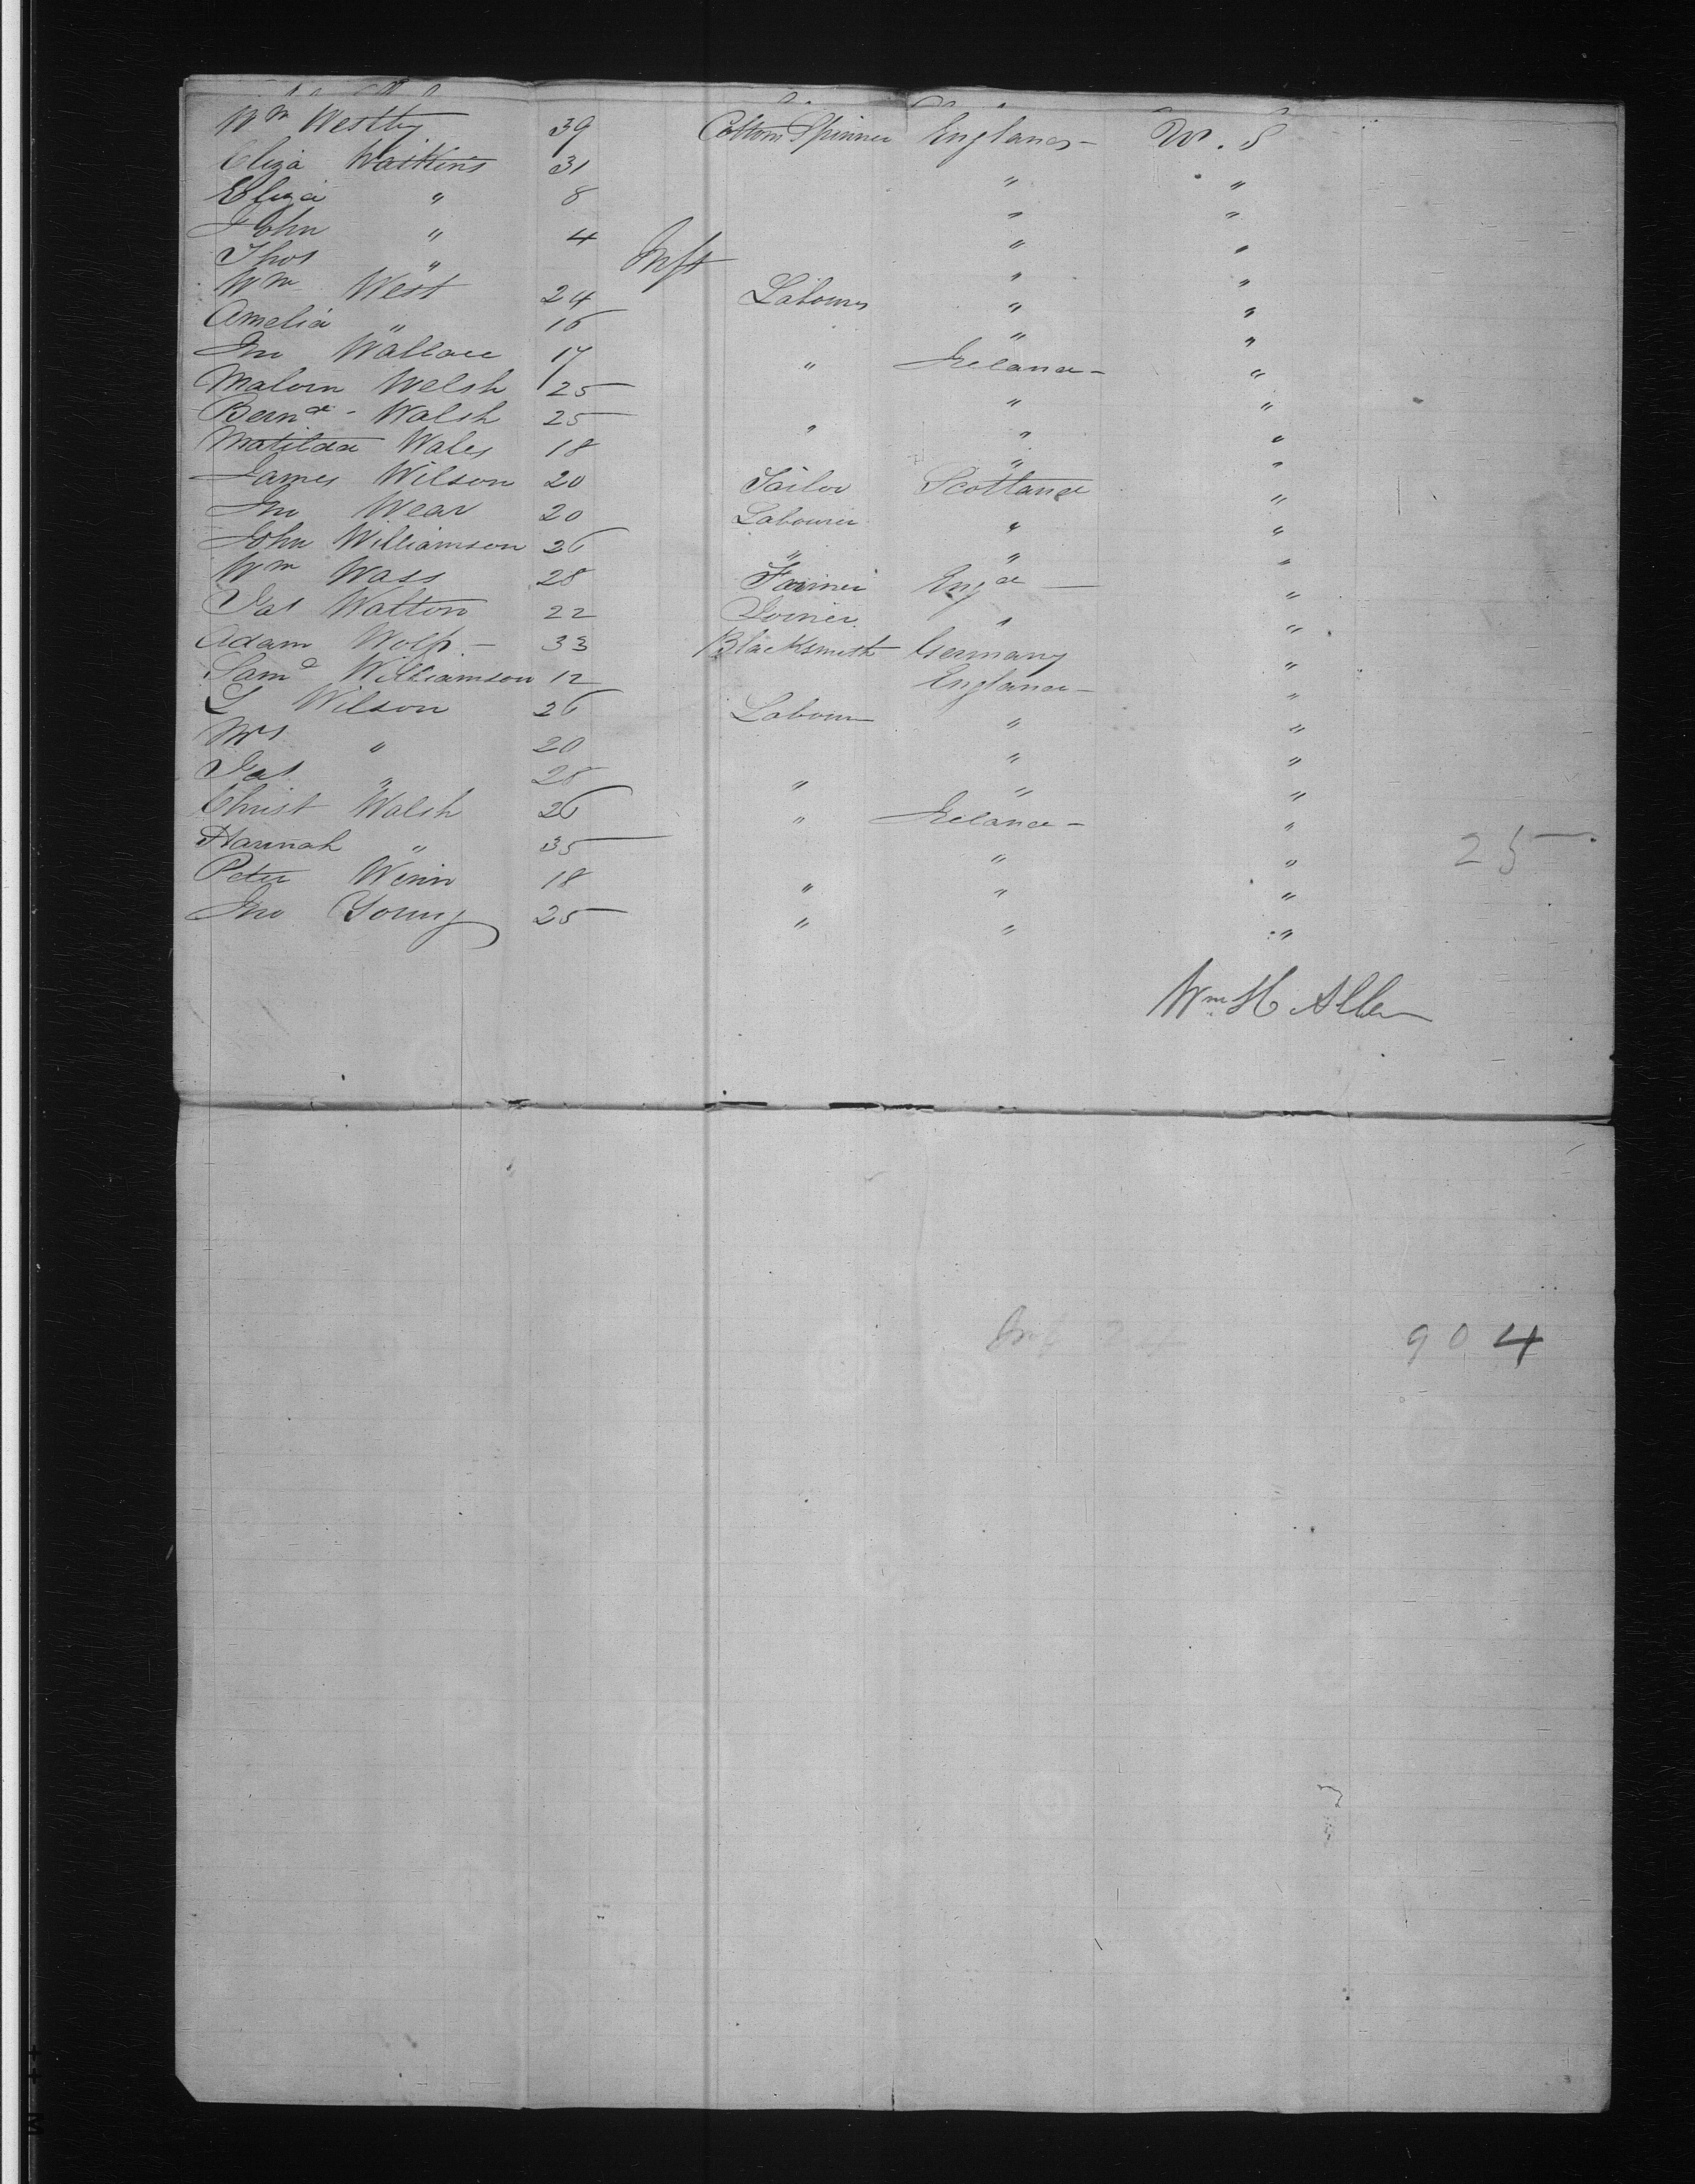 Wm Westby 39 Cotton Spinner England - U. S
Eliza Watkins 31 " "
Eliza " 8 " "
John " 4 " "
Thos " Inft " "
Wm West 24 Labourer " "
Amelia " 16 " "
Jno Wallace 17 " Ireland - "
Welsh 25 " "
Bernd - Walsh 25 " " "
Matilda Wales 18 " "
James Wilson 20 Tailor Scotland "
Jno Wear 20 Labourer " "
John Williamson 26 " " "
Wm Wass 28 Farmer Engd "
Jas Walton 22 Joiner " "
Adam Wolf - 33 Blacksmith Germany "
Saml Williamson 12 England - "
Wilson 26 Labourer " "
Mrs " 20 " "
Jas " 28 " " "
Christ Walsh 26 " Ireland - "
Hannah " 35 " "
25
Peter Winn 18 " " "
Jno Young 25 " " "
Wm H Allen
Inf 24 904